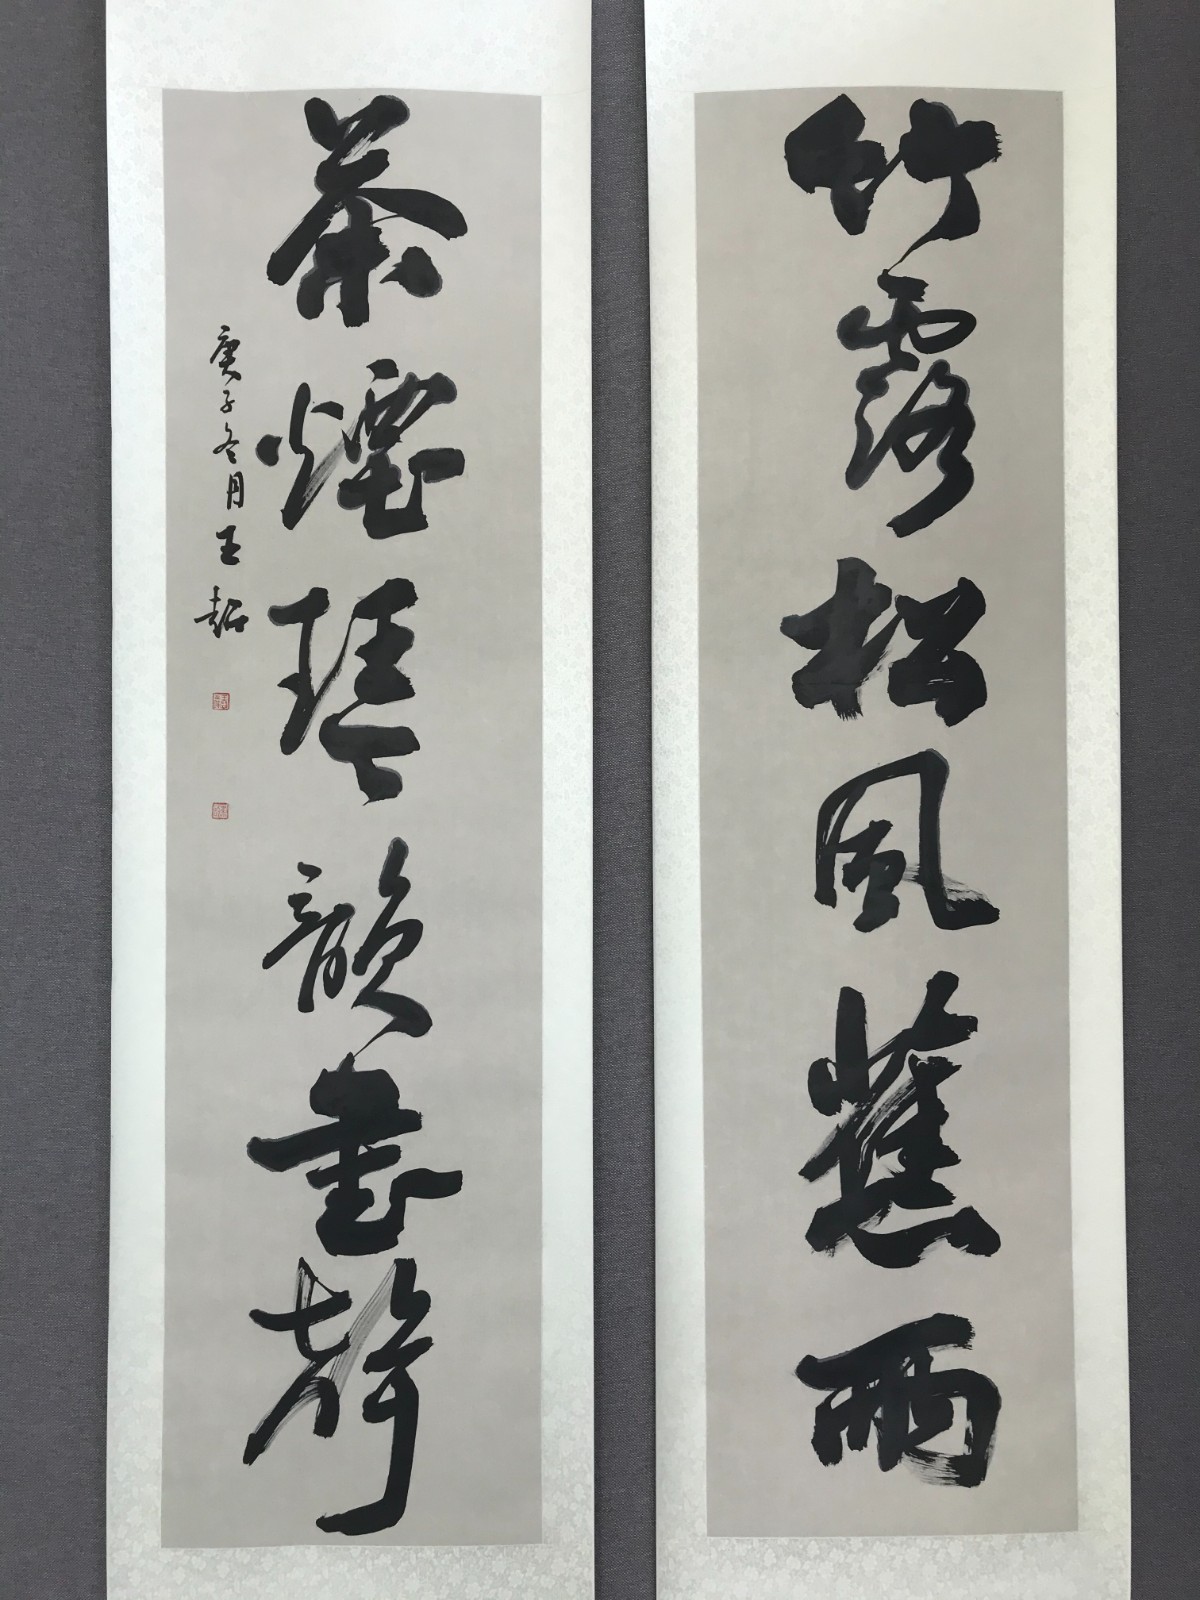 竹露松風蕉雨
茶煙琴韻書聲
庚子冬月王